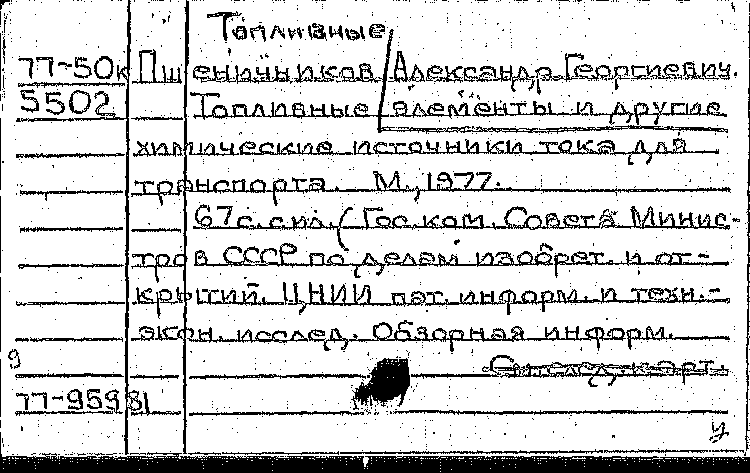 Топливные
77-50к Пшеничников, Александр Георгиевич.
5502 Топливные элементы и другие
химические источники тока для
транспорта. М., 1977.
67 с. с ил. (Гос. ком. Совета Минис-
тров СССР по делам изобрет. и от-
крытий. ЦНИИ пат. информ. и техн.-
экон. исслед. Обзорная информ.
9
77-95981
у